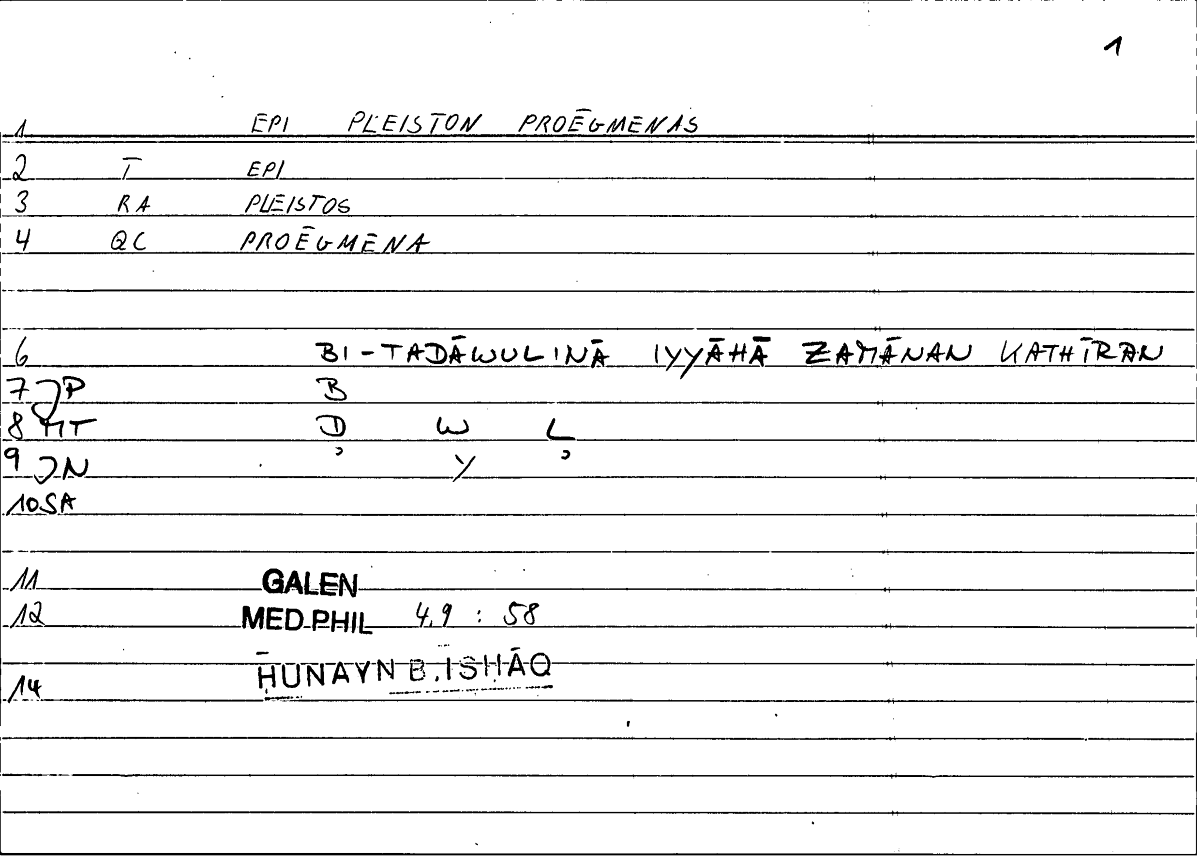 1
1 EPI PLEISTON PROĒGMENAS
2 T EPI
3 RA PLEISTOS
4 QC PROĒGMENA
6 BI-TADĀWULINĀ IYYĀHĀ ZAMĀNAN KATHĪRAN
7 JP B
8 MT D W L
9 JN Y
10 SA
11 GALEN
12 MED.PHIL 4,9 : 58
14 ḤUNAYN B. ISḤĀQ